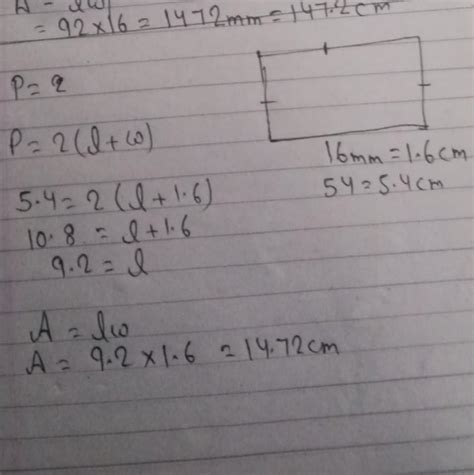 A = lw
= 92×16 = 1472mm = 147.2cm
P = 2
P = 2(l+w)
16mm = 1.6cm
54 = 5.4cm
5.4 = 2(l+1.6)
10.8 = l+1.6
9.2 = l
A = lw
A = 9.2×1.6 = 14.72cm